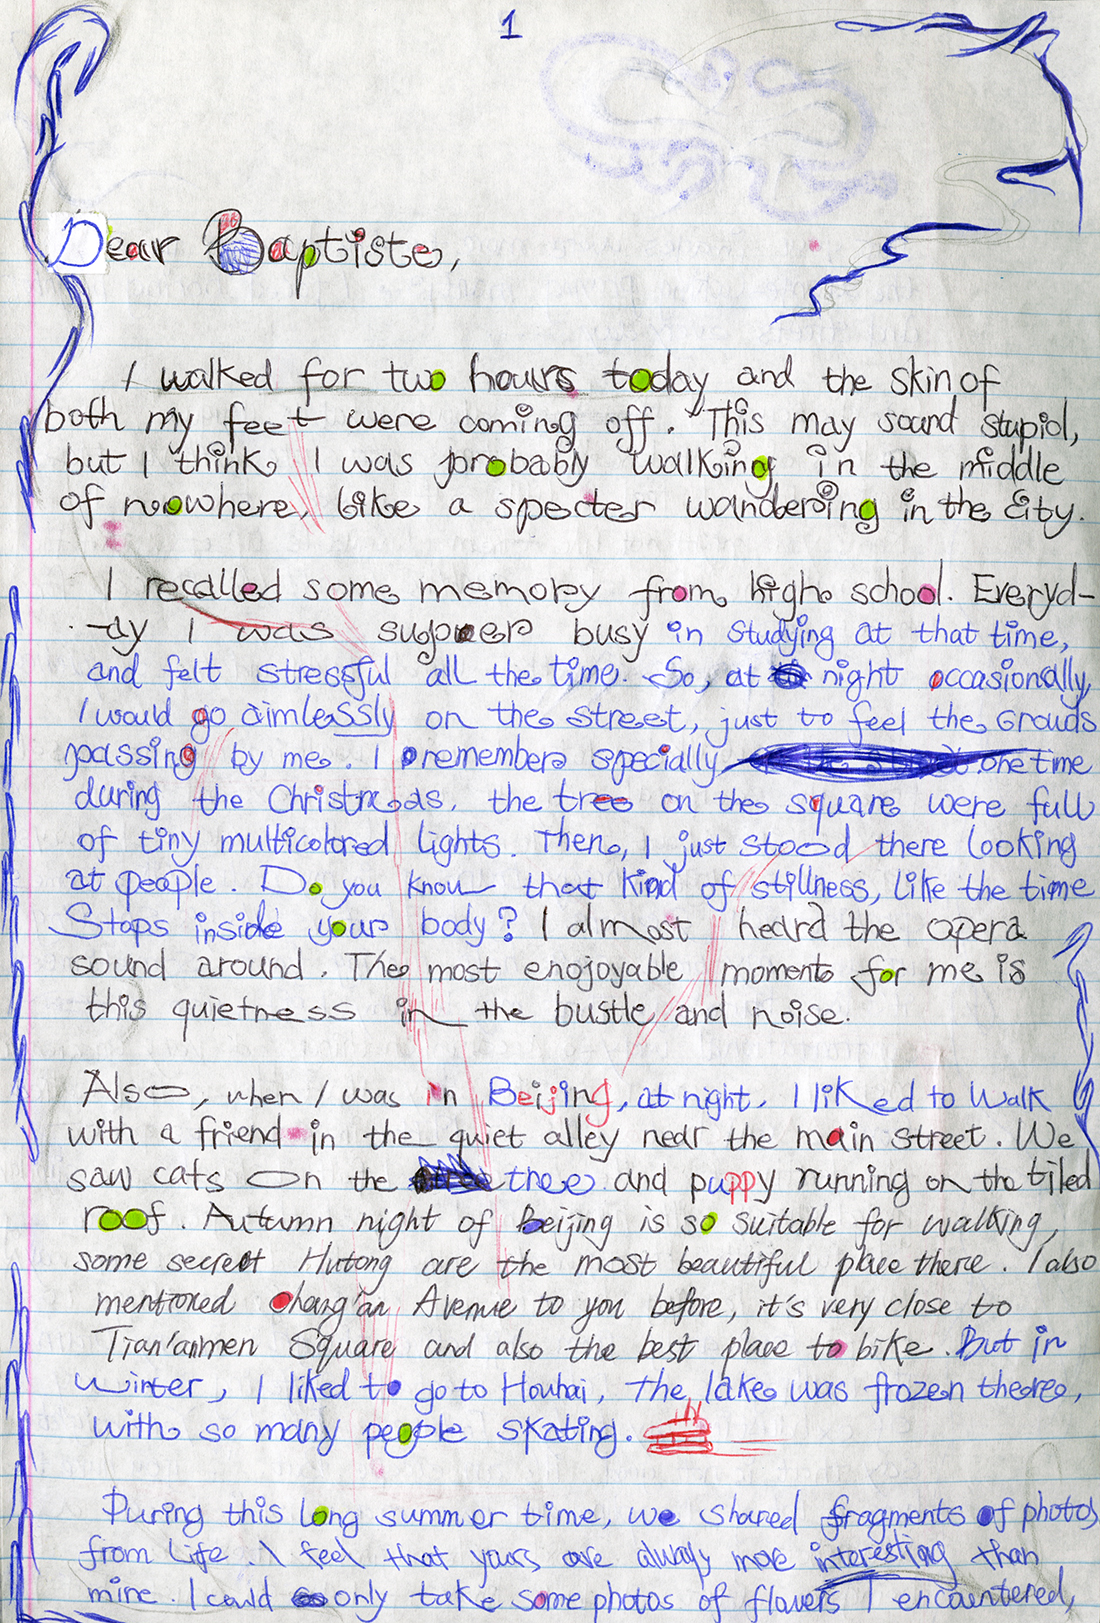 1
Dear Baptiste,
I walked for two hours today and the skin of
both my feet were coming off. This may sound stupid,
but I think I was probably walking in the middle
of noowhere, like a specter wandering in the City.
I recalled some memory from high school. Everyd-
-ay I was supper busy in studying at that time,
and felt stressful all the time. So, at night occasionally,
I would go aimlessly on the street, just to feel the crouds
passing by me. I remember specially one time
during the Christmas, the tree on the square were full
of tiny multicolored lights. Then, I just stood there looking
at people. Do you know that kind of stillness, like the time
Stops inside your body? I almost heard the opera
sound around. The most enojoyable moment for me is
this quietness in the bustle and noise.
Also, when I was in Beijing, at night, I liked to walk
with a friend in the quiet alley near the main street. We
saw cats on the three and puppy running on the tiled
roof. Autumn night of Beijing is so suitable for walking,
some secret Hutong are the most beautiful place there. I also
mentioned Chang'an Avenue to you before, it's very close to
Tian'anmen Square and also the best place to bike. But in
winter, I liked to go to Houhai, the lake was frozen there,
with so many people skating.
During this long summer time, we shared fragments of photos
from life. I feel that yours are alwaly more interesting than
mine. I could only take some photos of flowers I encountered,